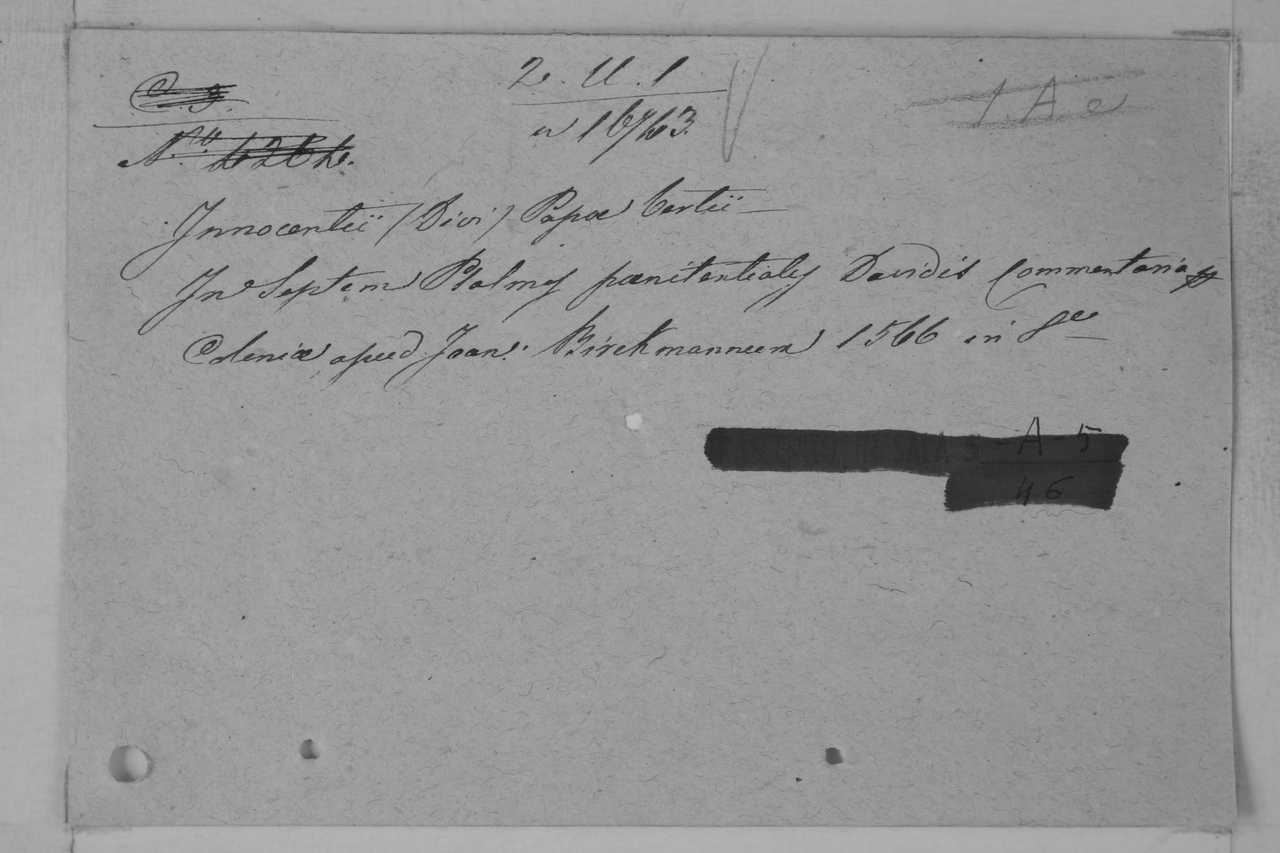 2. U. 1
1 A e
Innocentii (Divi) Papæ tertii
In Septem Psalmos pænitentiales Davidis Commentaria
Coloniæ apud Joan. Birckmannum 1566 in 8ve
S - A - 5
46